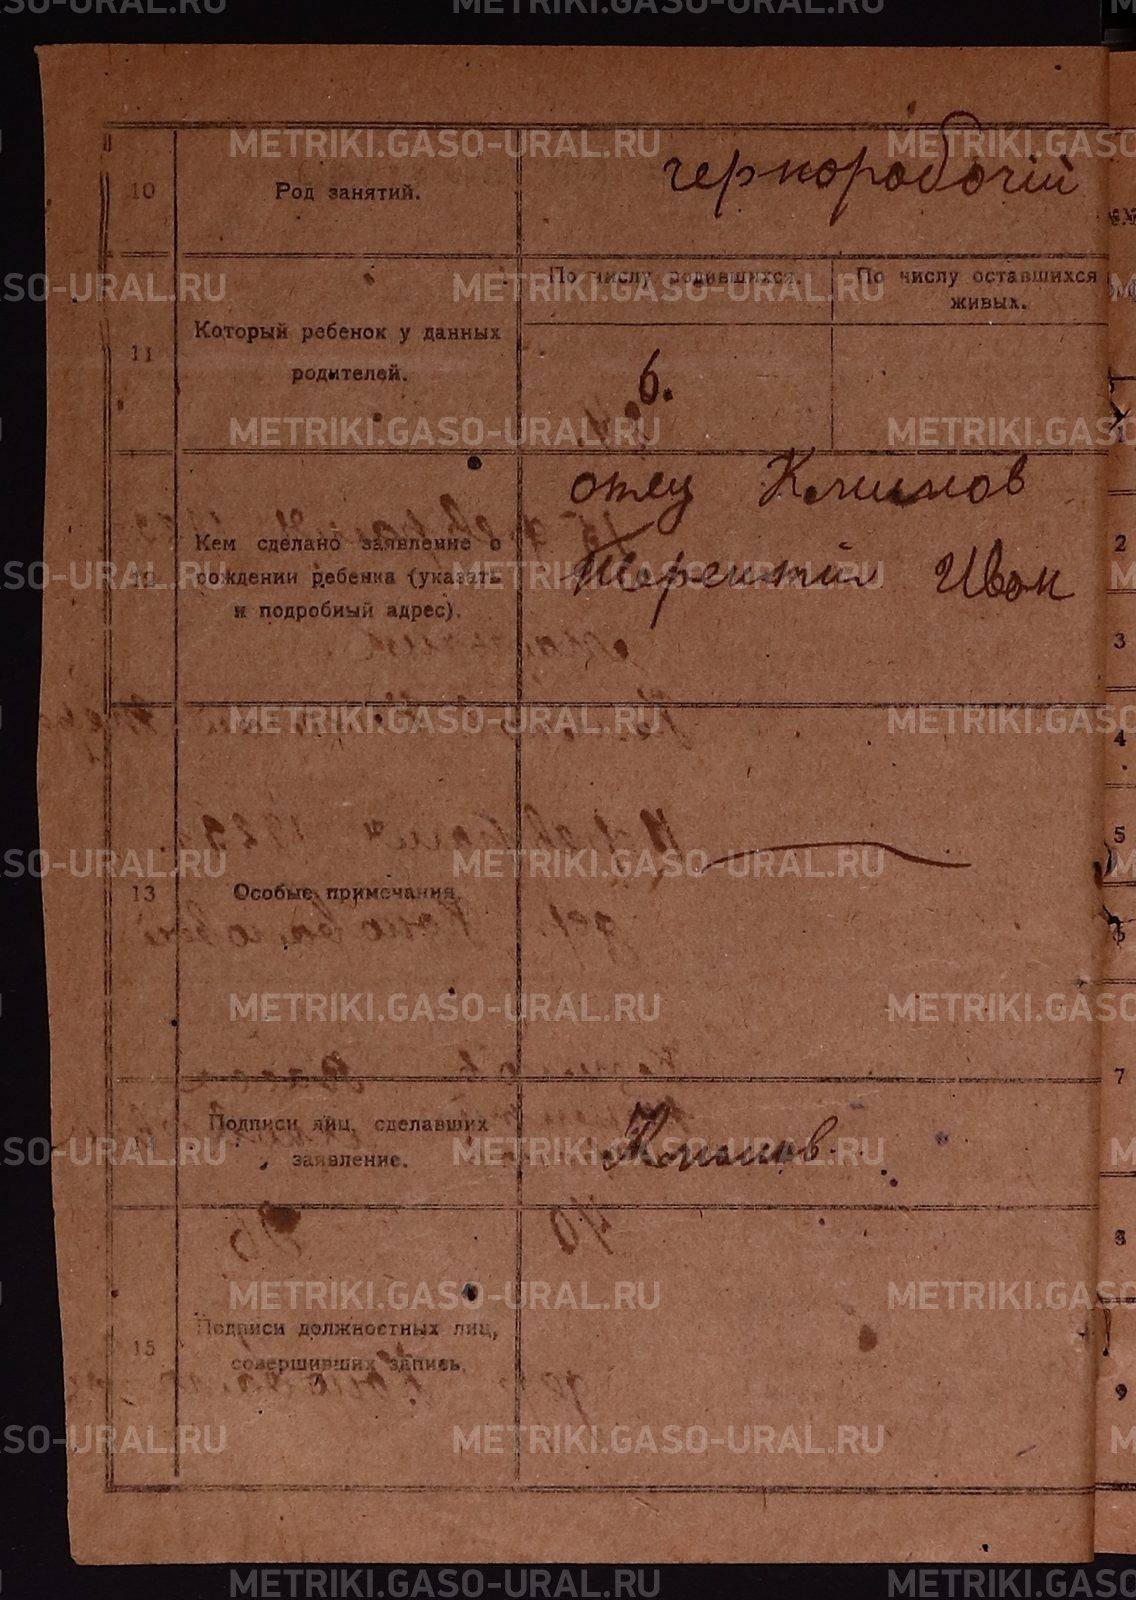 METRIKI.GASO-URAL.RU
10
Род занятий.
чернорабочій
11
Который ребенок у данных
родителей.
По числу родившихся.
По числу оставшихся
живых.
6.
12
Кем сделано заявление о
рождении ребенка (указать
и подробный адрес).
отец Климов
Терентий Иван
13
Особые примечания.
14
Подписи лиц, сделавших
заявление.
Климов
15
Подписи должностных лиц,
совершивших запись.
1
2
3
4
5
6
7
8
9